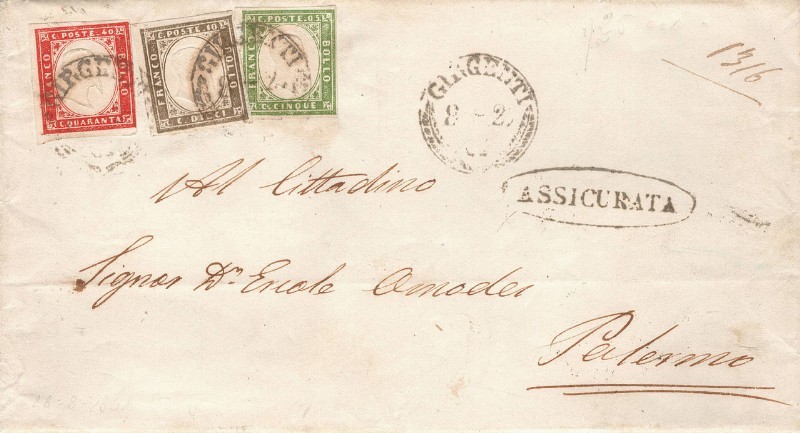 C. POSTE. 40
FRANCO
BOLLO
C. QUARANTA
C. POSTE. 10
FRANCO
BOLLO
C. DIECI
C. POSTE. 05
FRANCO
BOLLO
C. CINQUE
GIRGENTI
1316
GIRGENTI
Al Cittadino
ASSICURATA
Signor Dn Ercole Amodei
Palermo